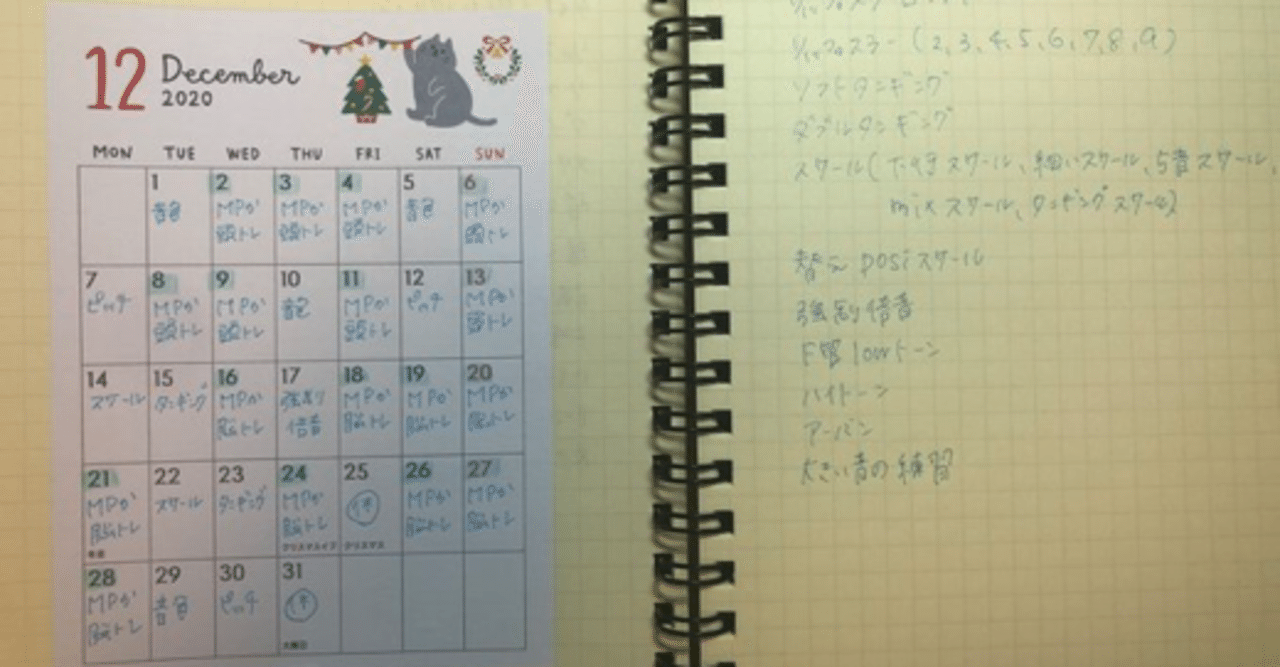 12 December
2020
MON TUE WED THU FRI SAT SUN
1 2 3 4 5 6
音色 MPか MPか MPか 音色 MPか
頭トレ 頭トレ 頭トレ 頭トレ
7 8 9 10 11 12 13
ピッチ MPか MPか 音色 MPか ピッチ MPか
頭トレ 頭トレ 頭トレ 頭トレ
14 15 16 17 18 19 20
スケール タンギング MPか 強制 MPか MPか MPか
脳トレ 倍音 脳トレ 脳トレ 脳トレ
21 22 23 24 25 26 27
MPか スケール タンギング MPか 休 MPか MPか
脳トレ 脳トレ 脳トレ 脳トレ
冬至 クリスマスイブ クリスマス
28 29 30 31
MPか 音色 ピッチ 休
脳トレ
大晦日
スラー (2,3,4,5,6,7,8,9)
ソフトタンギング
ダブルタンギング
スケール(スケール、細いスケール、5音スケール、
mixスケール、タンギングスケール)
替え posiスケール
強制倍音
F管 lowトーン
ハイトーン
アーバン
大きい音の練習